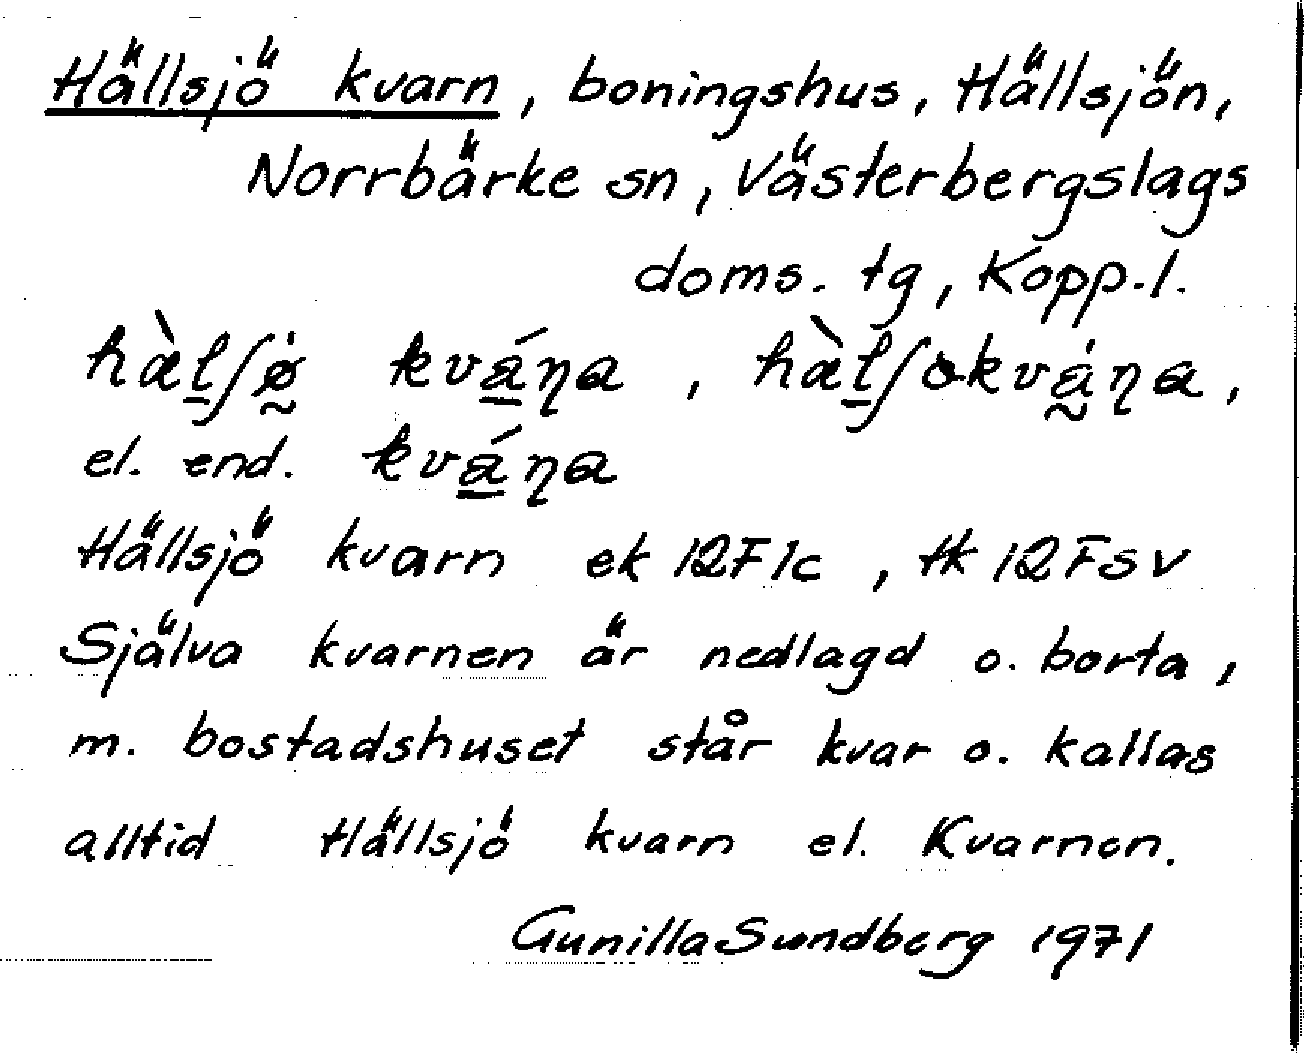 Hällsjö kvarn, boningshus, Hällsjön,
Norrbärke sn, Västerbergslags
doms. tg, Kopp.l.
hæ̀l̠ʃǿ̰ kvá̠ŋa, hæ̀l̠ʃɷkvá̰ŋa,
el. end. kvá̠ŋa
Hällsjö kvarn ek 12F1c, tk 12Fsv
Själva kvarnen är nedlagd o. borta,
m. bostadshuset står kvar o. kallas
alltid Hällsjö kvarn el. Kvarnen.
Gunilla Sundberg 1971